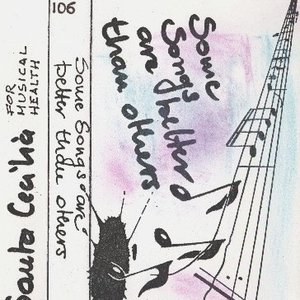 106
Santa Cecilia
FOR
MUSICAL
HEALTH
Some Songs are
better than others
Some
Songs better
are
than others